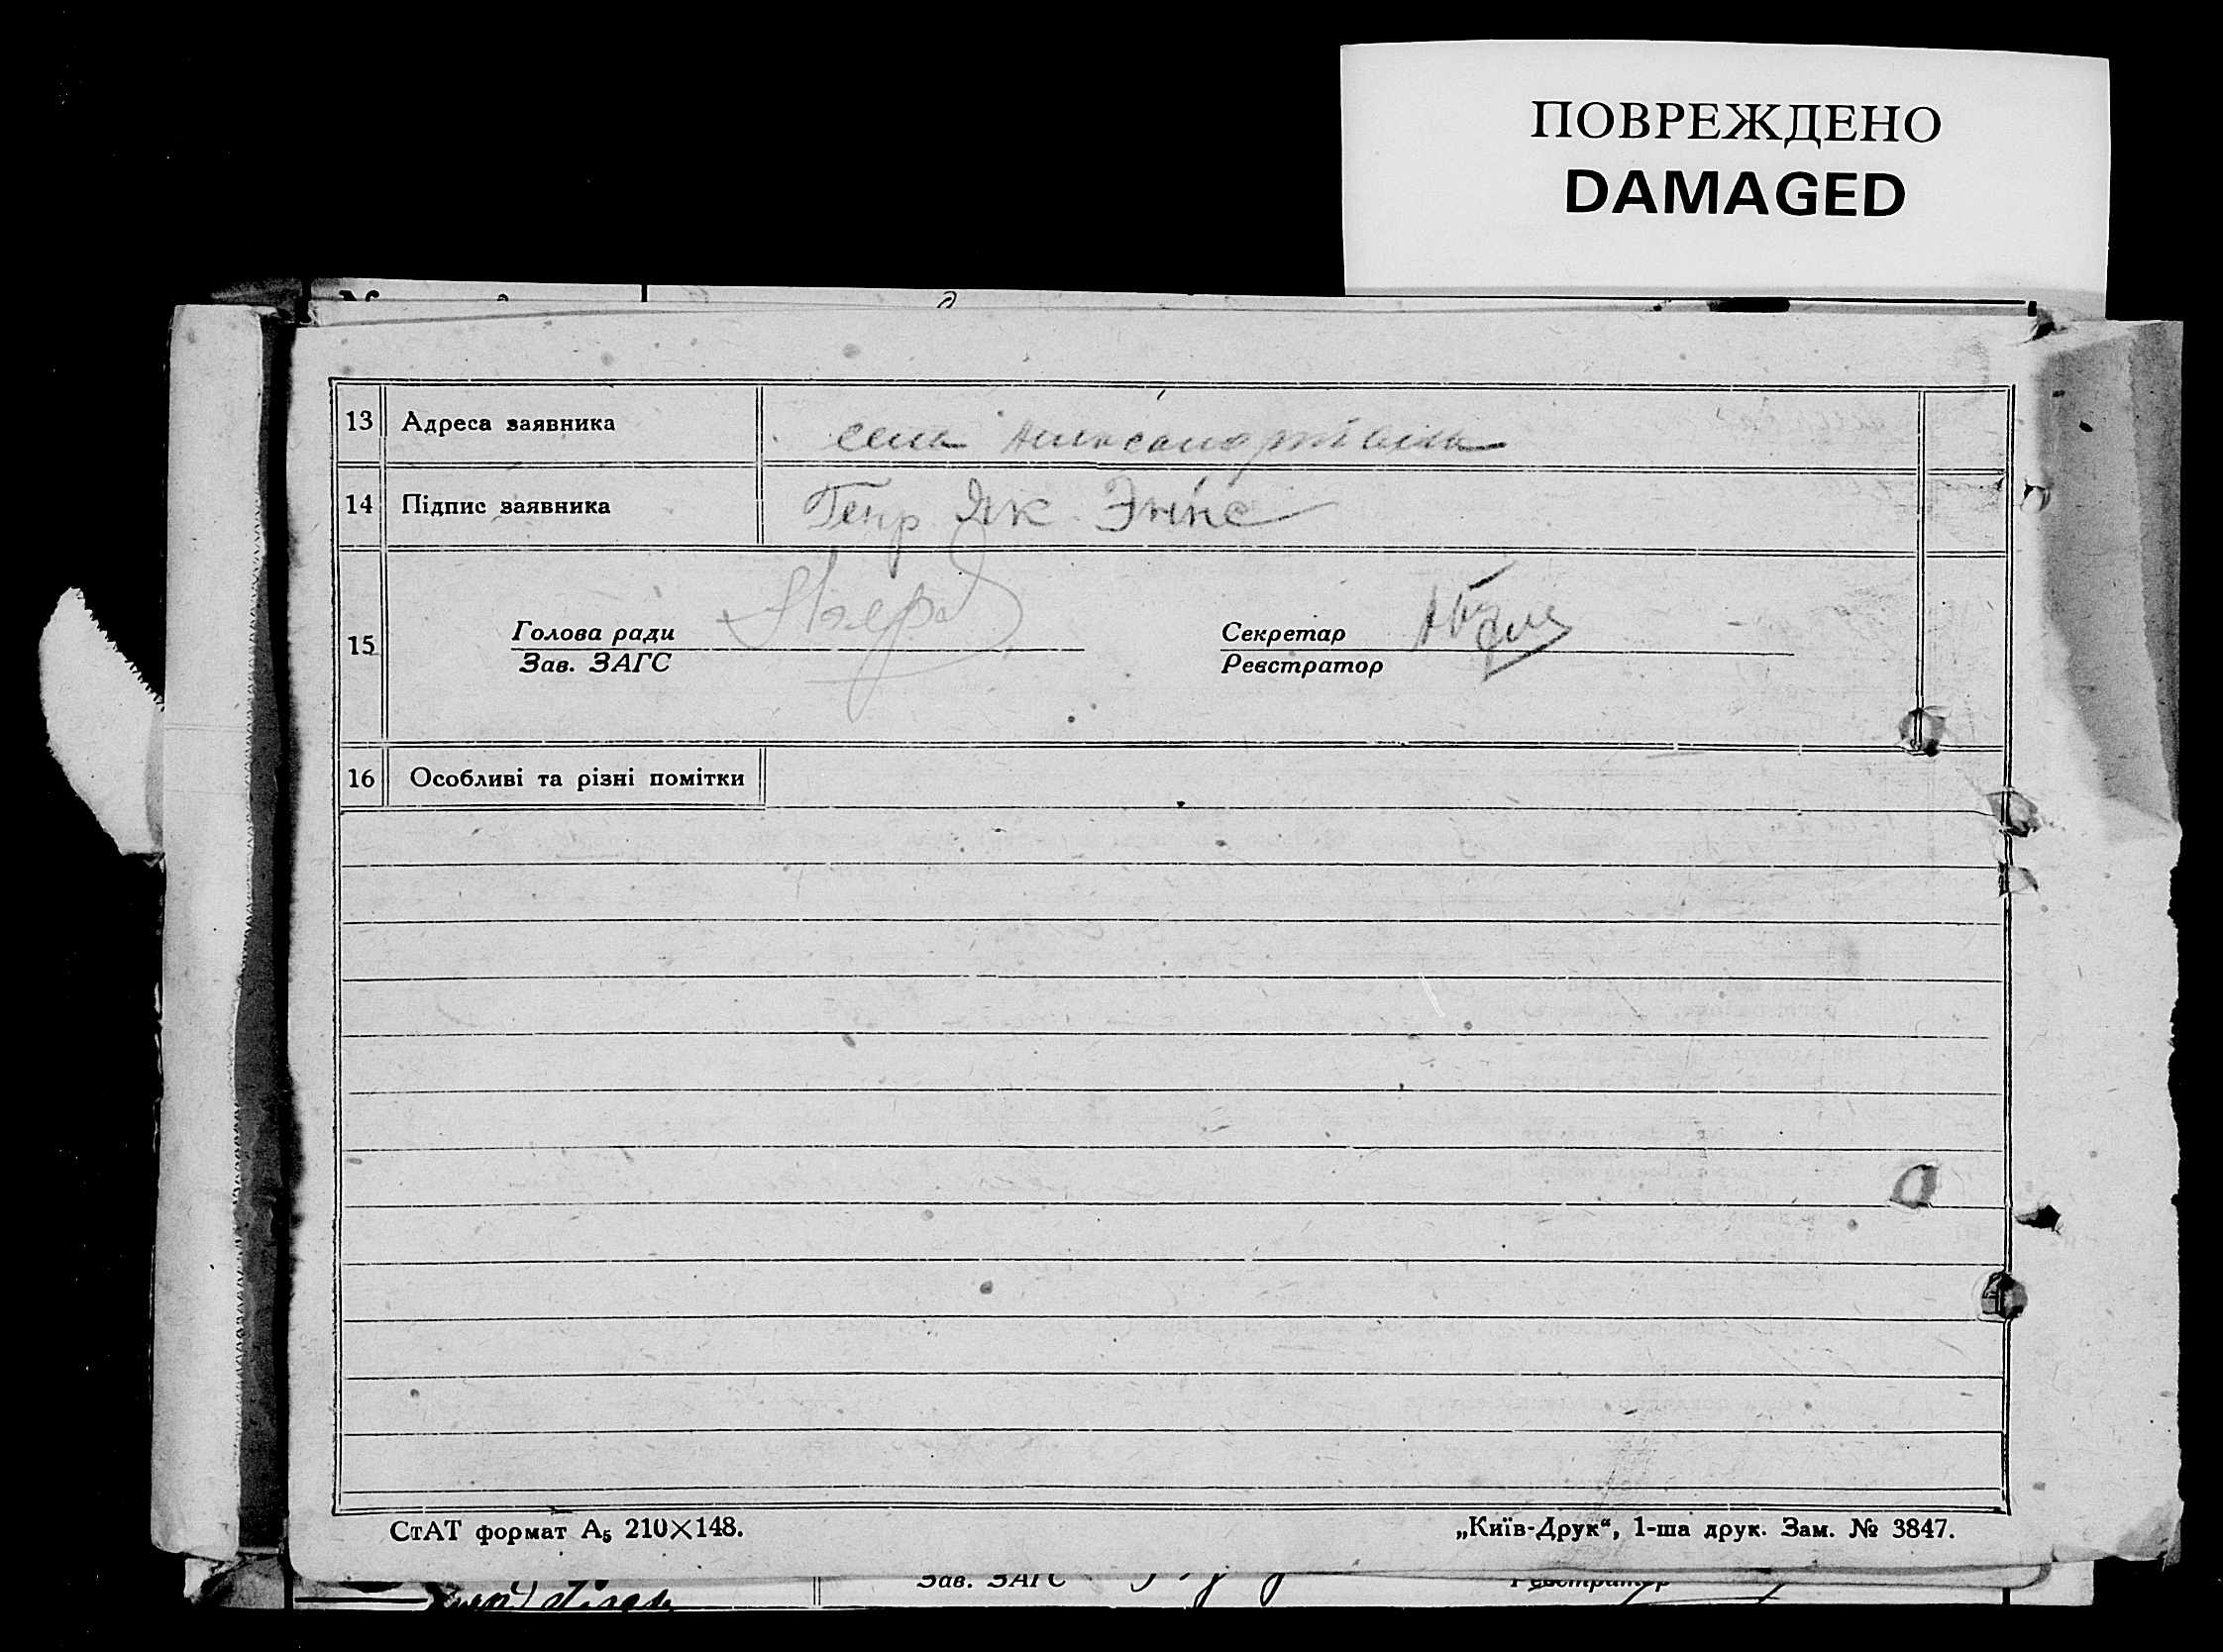 ПОВРЕЖДЕНО
DAMAGED
13 Адреса заявника села
14 Підпис заявника Генр Як Эннс
15 Голова ради Секретар
Зав. ЗАГС Реєстратор
16 Особливі та різні помітки
СтАТ формат А₅ 210×148. „Київ-Друк“, 1-ша друк. Зам. № 3847.
Зав. ЗАГС Реєстратор